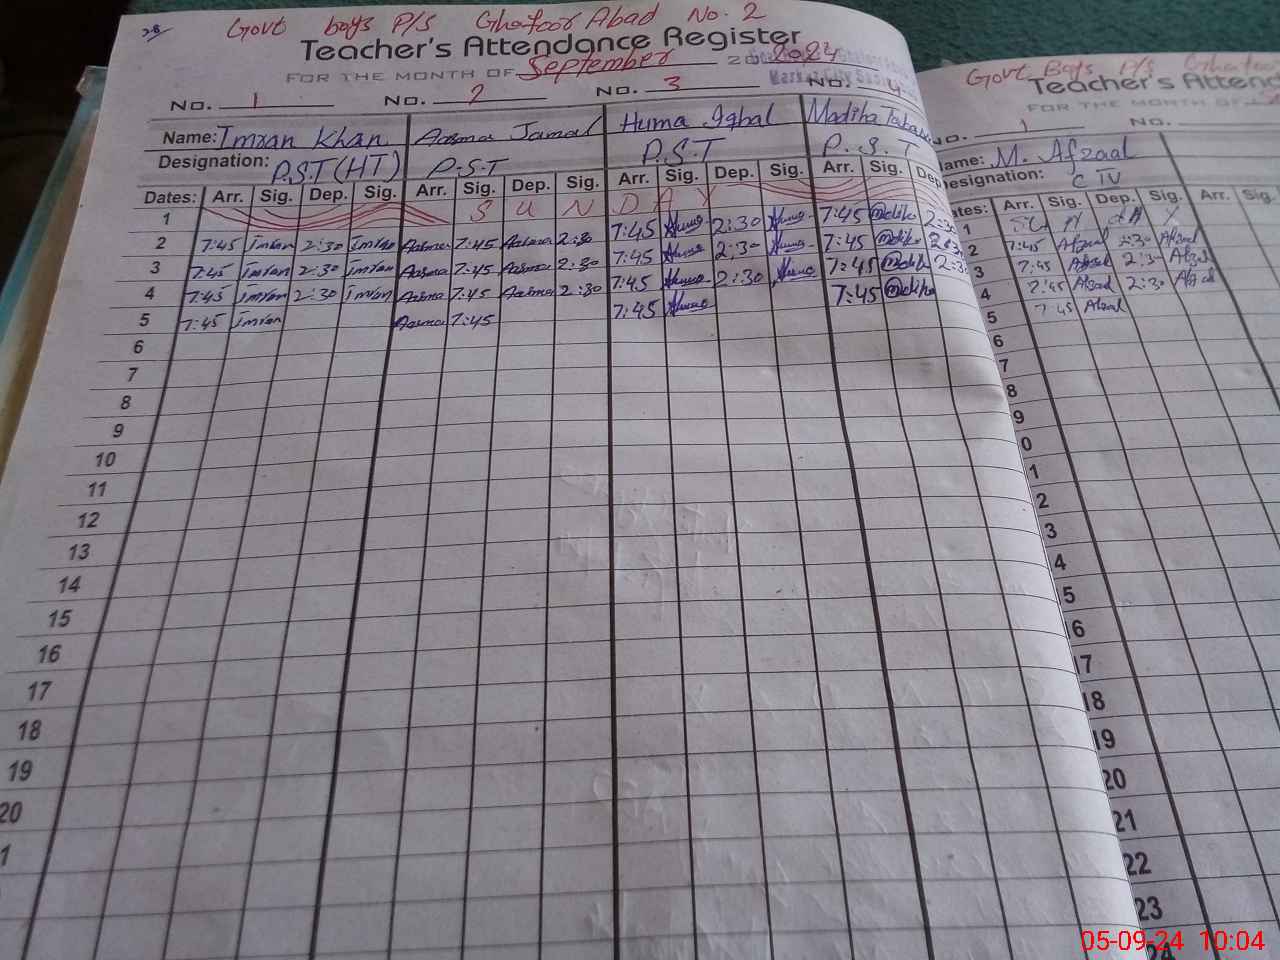 Govt boys P/S Ghafoor Abad No. 2
Teacher's Attendance Register
FOR THE MONTH OF September 2024
No. 1 No. 2 No. 3 No. 4
Name: Imran Khan Aasma Jamal Huma Iqbal Madiha
Designation: P.S.T (HT) P.S.T P.S.T P.S.T
Dates: Arr. Sig. Dep. Sig. Arr. Sig. Dep. Sig. Arr. Sig. Dep. Sig. Arr. Sig. Dep.
1 S U N D A Y
2 7:45 Imran 2:30 Imran Aasma 7:45 Aasma 2:30 7:45 Huma 2:30 Huma 7:45 Madiha 2:30
3 7:45 Imran 2:30 Imran Aasma 7:45 Aasma 2:30 7:45 Huma 2:30 Huma 7:45 Madiha 2:30
4 7:45 Imran 2:30 Imran Aasma 7:45 Aasma 2:30 7:45 Huma 2:30 Huma 7:45 Madiha 2:30
5 7:45 Imran Aasma 7:45 7:45 Huma 7:45 Madiha
6
7
8
9
10
11
12
13
14
15
16
17
18
19
20
1
Govt Boys P/S
Teacher's Attend
FOR THE MONTH OF
No. 1 No.
Name: M. Afzaal
Designation: CIV
Dates: Arr. Sig. Dep. Sig. Arr. Sig.
1
2 7:45 Afzaal 2:30 Afzaal
3 7:45 Afzaal 2:30 Afzaal
4 7:45 Afzaal 2:30 Afzaal
5 7:45 Afzaal
6
7
8
9
0
1
2
3
4
5
6
17
18
19
20
21
22
23
24
05-09-24 10:04